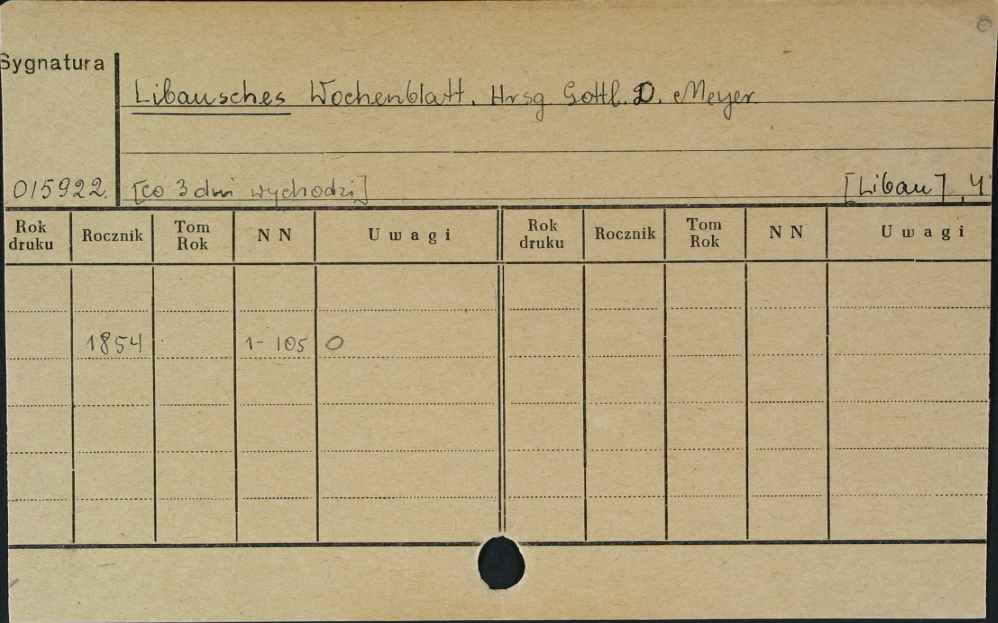 Sygnatura
Libausches Wochenblatt. Hrsg Gottl. D. Meyer
015922. [co 3 dni wychodzi] [Libau], 4°
Rok druku Rocznik Tom Rok NN Uwagi Rok druku Rocznik Tom Rok NN Uwagi
1854 1-105 O